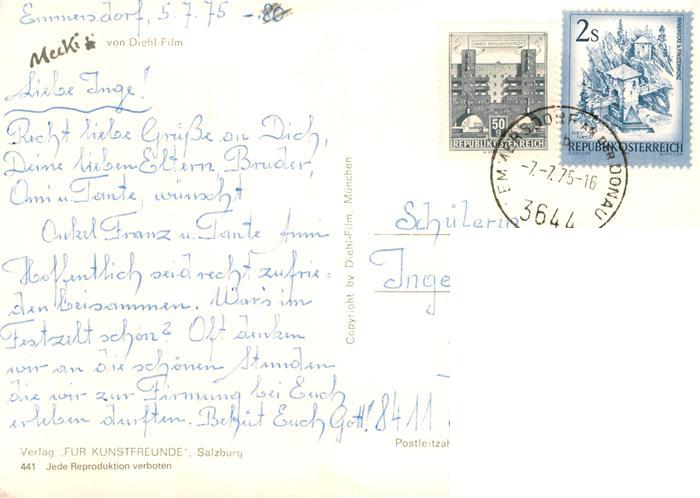 Emmersdorf, 5.7.75 -.80
Mecki
von Diehl-Film
Liebe Inge!
Recht liebe Grüße an Dich,
Deine lieben Eltern, Bruder,
Omi u. Tante, wünscht
Onkel Franz u. Tante
Hoffentlich seid recht zufrie=
den beisammen. War's im
Festzelt schön? Oft denken
wir an die schönen Stunden
die wir zur Firmung bei Euch
erleben durften. Behüt Euch Gott!
Verlag „FÜR KUNSTFREUNDE", Salzburg
441 Jede Reproduktion verboten
Copyright by Diehl-Film, München
50 g
REPUBLIK ÖSTERREICH
2s
REPUBLIK ÖSTERREICH
EMMERSDORF AN DER DONAU
-7.-7.75-16
3644
Schülerin
Inge
8411
Postleitzah